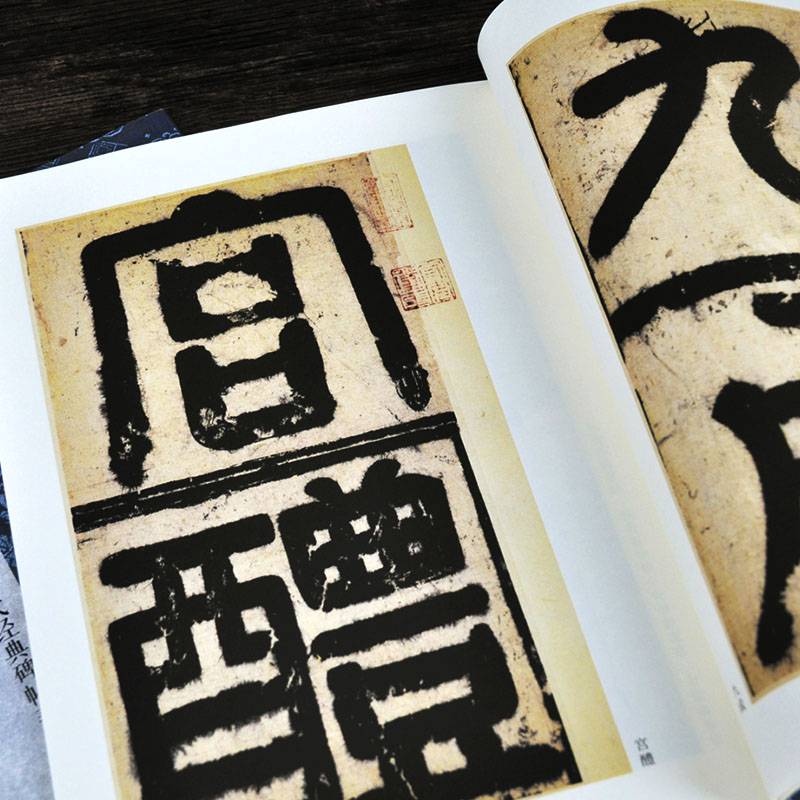 九
成
九成
宮
醴
宮醴
经典碑帖